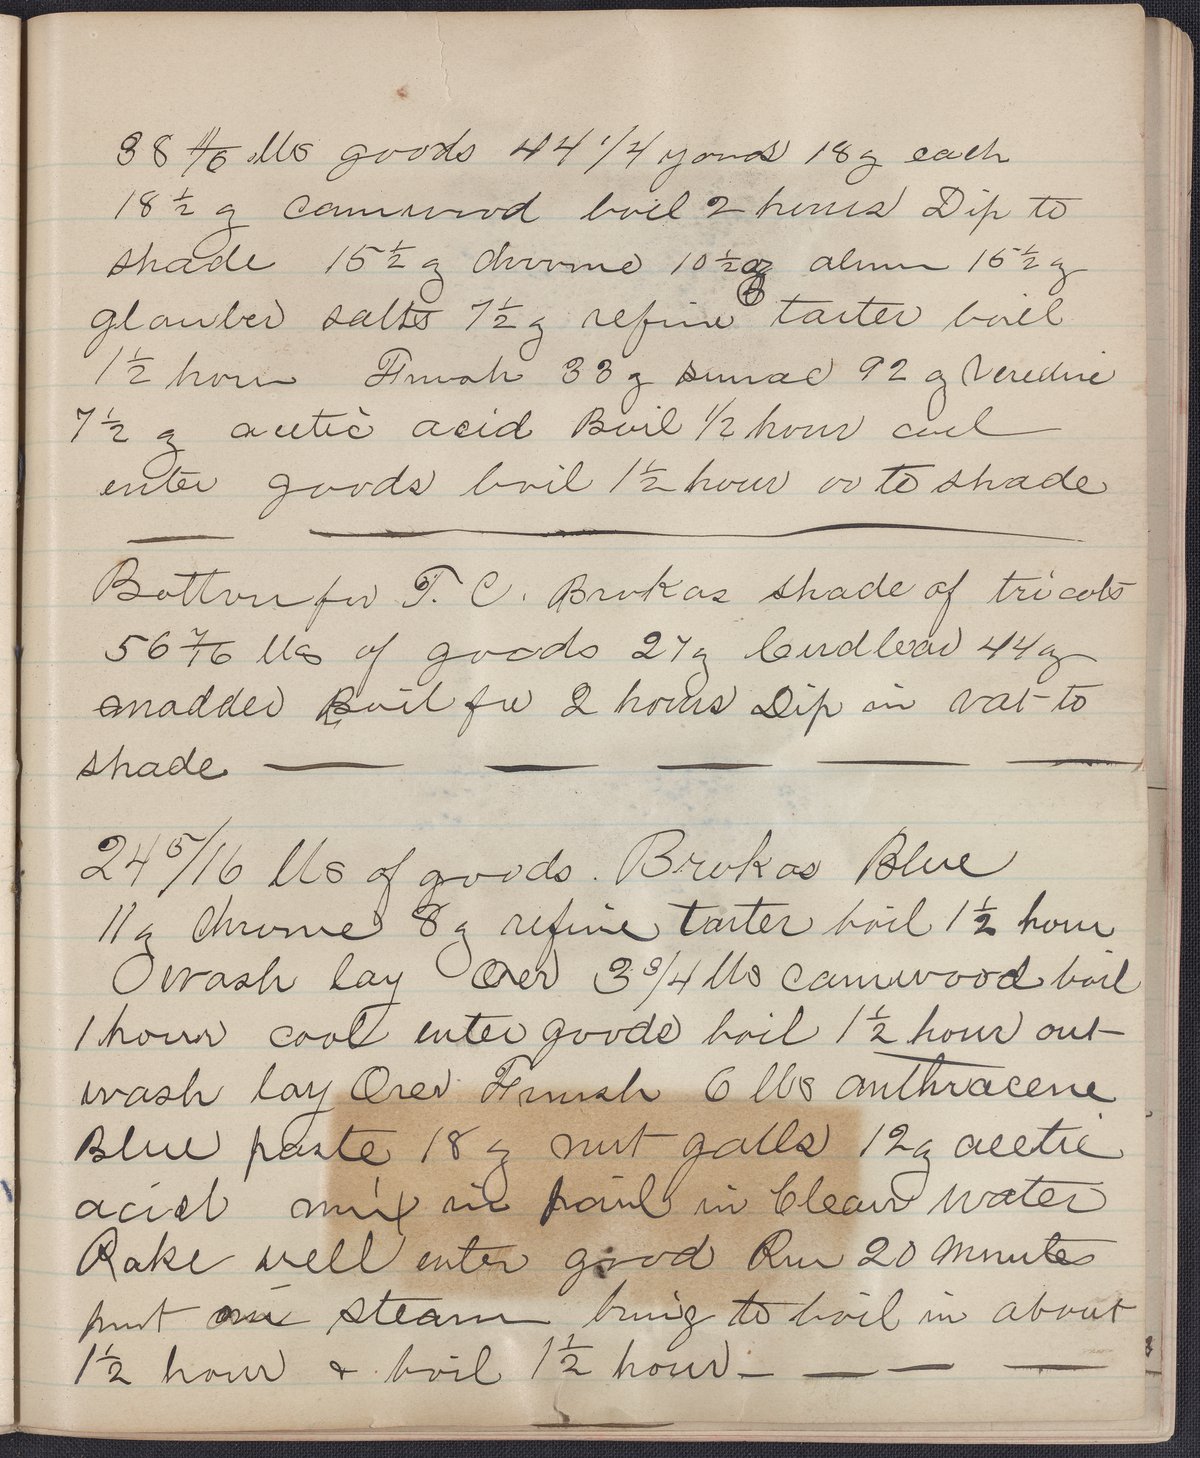 38 11/16 lbs goods 44 1/4 yards 18 g each
18 1/2 g camwood boil 2 hours Dip to
shade 15 1/2 g chrome 10 1/2 g alum 15 1/2 g
glauber salts 7 1/2 g refine tarter boil
1 1/2 hour Finish 33 g sumac 92 g
7 1/2 g acetic acid Boil 1/2 hour cool
enter goods boil 1 1/2 hour or to shade
Bottom for T. C. Brokas shade of tricots
56 7/16 lbs of goods 27 g Cudbear 44 g
madder Boil for 2 hours Dip in vat to
shade
24 5/16 lbs of goods. Brokas Blue
11 g chrome 8 g refine tarter boil 1 1/2 hour
wash lay Over 3 3/4 lbs camwood boil
1 hour cool enter goods boil 1 1/2 hour out
wash lay Over Finish 6 lbs anthracene
Blue paste 18 g nut galls 12 g acetic
acid mix in pail in Clean water
Rake well enter good Run 20 Minutes
put on steam bring to boil in about
1 1/2 hour & boil 1 1/2 hour